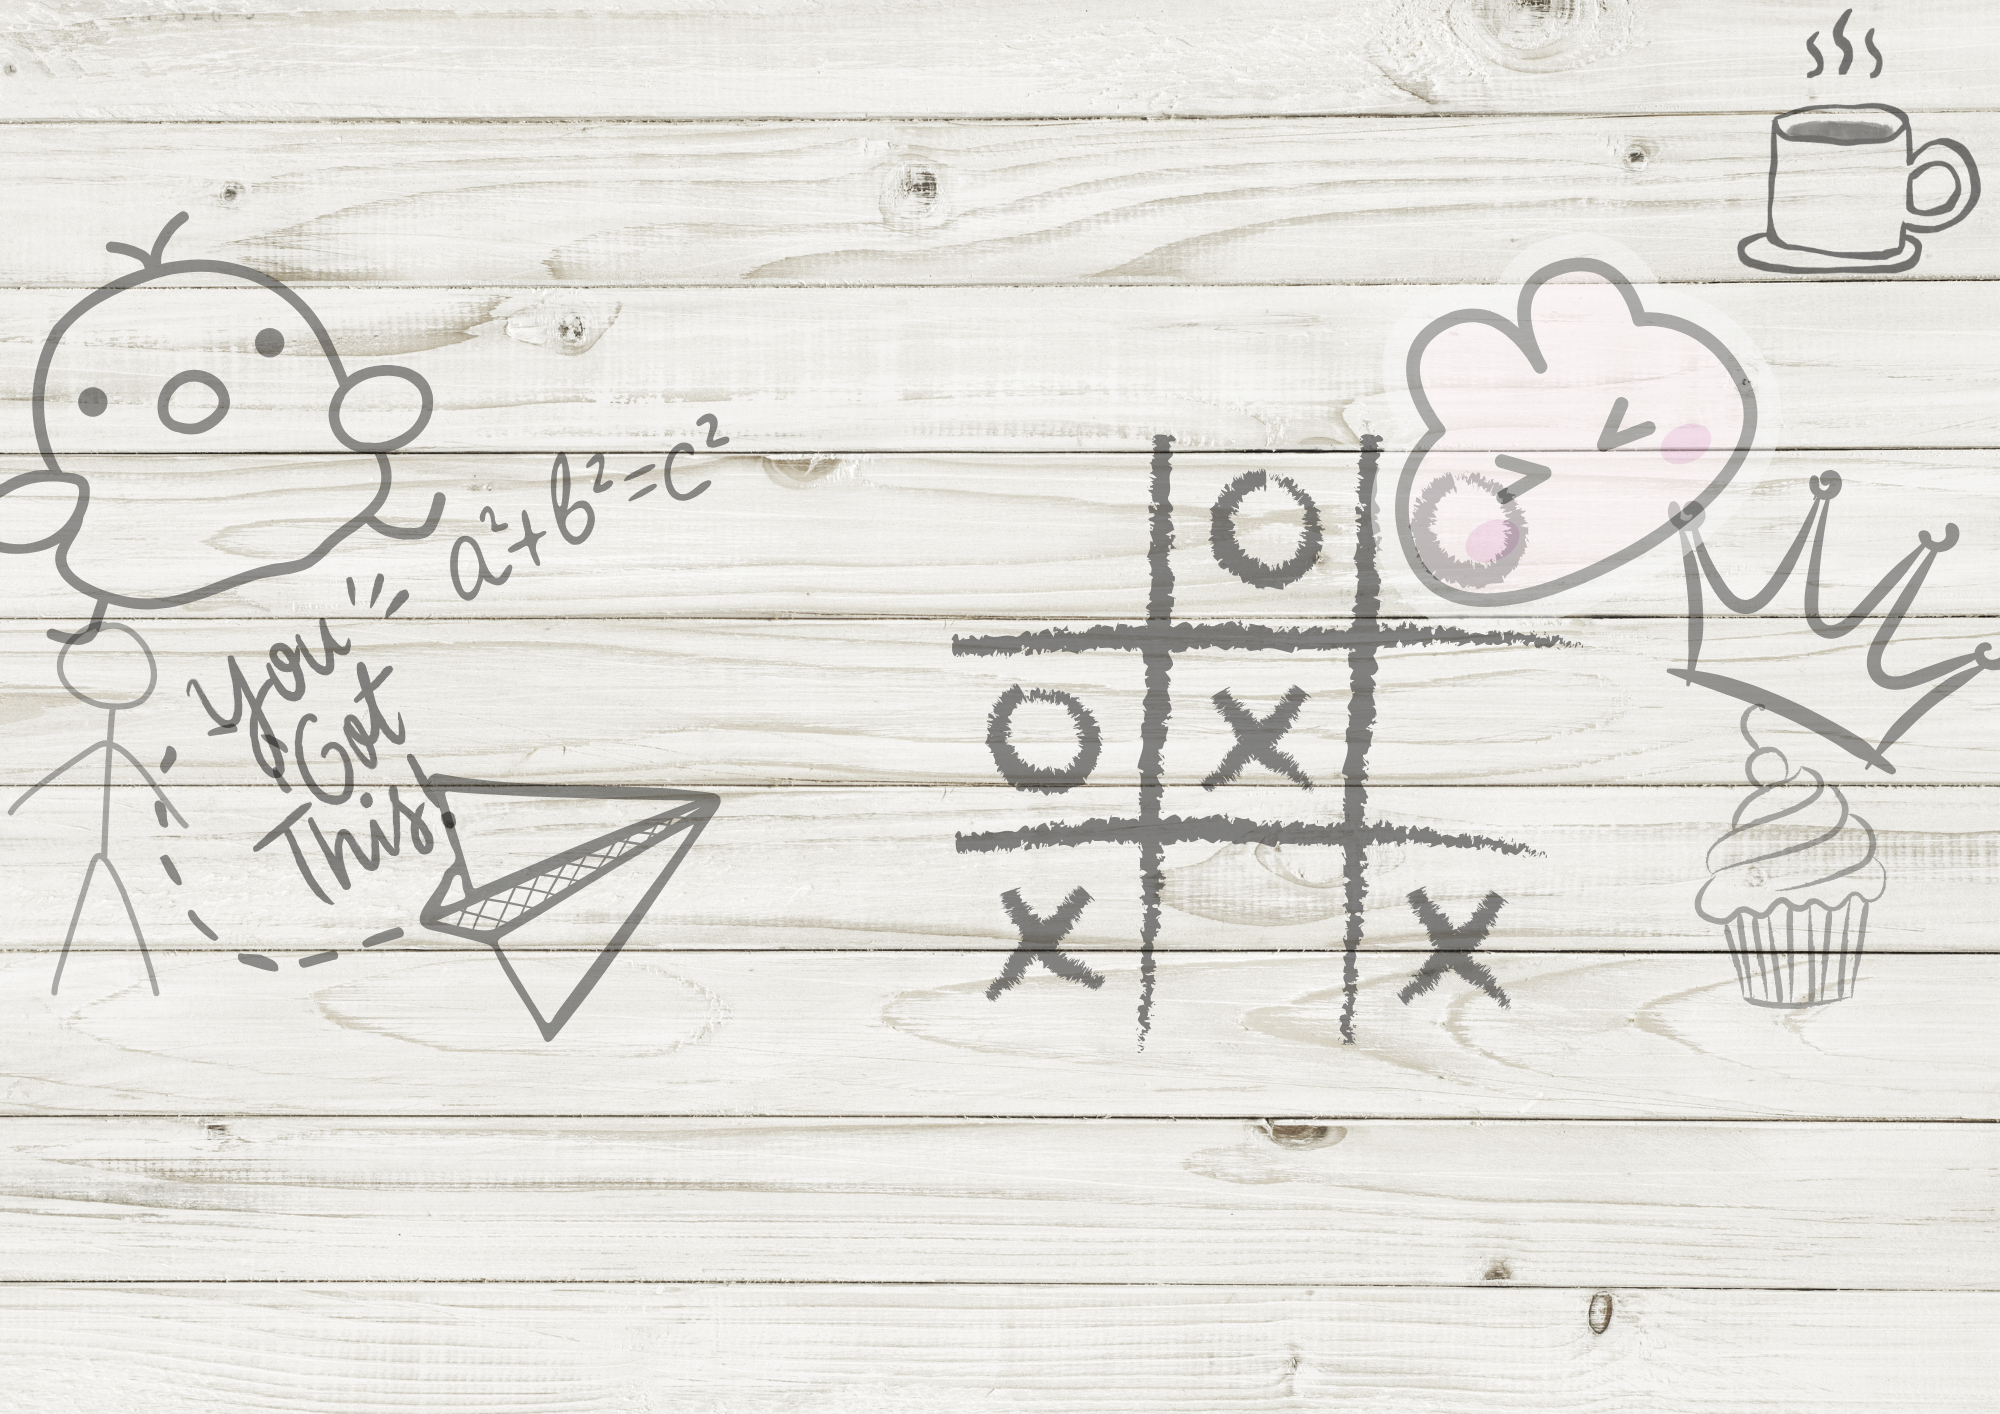 a²+b²=c²
You
Got
This!
O O
O X
X X